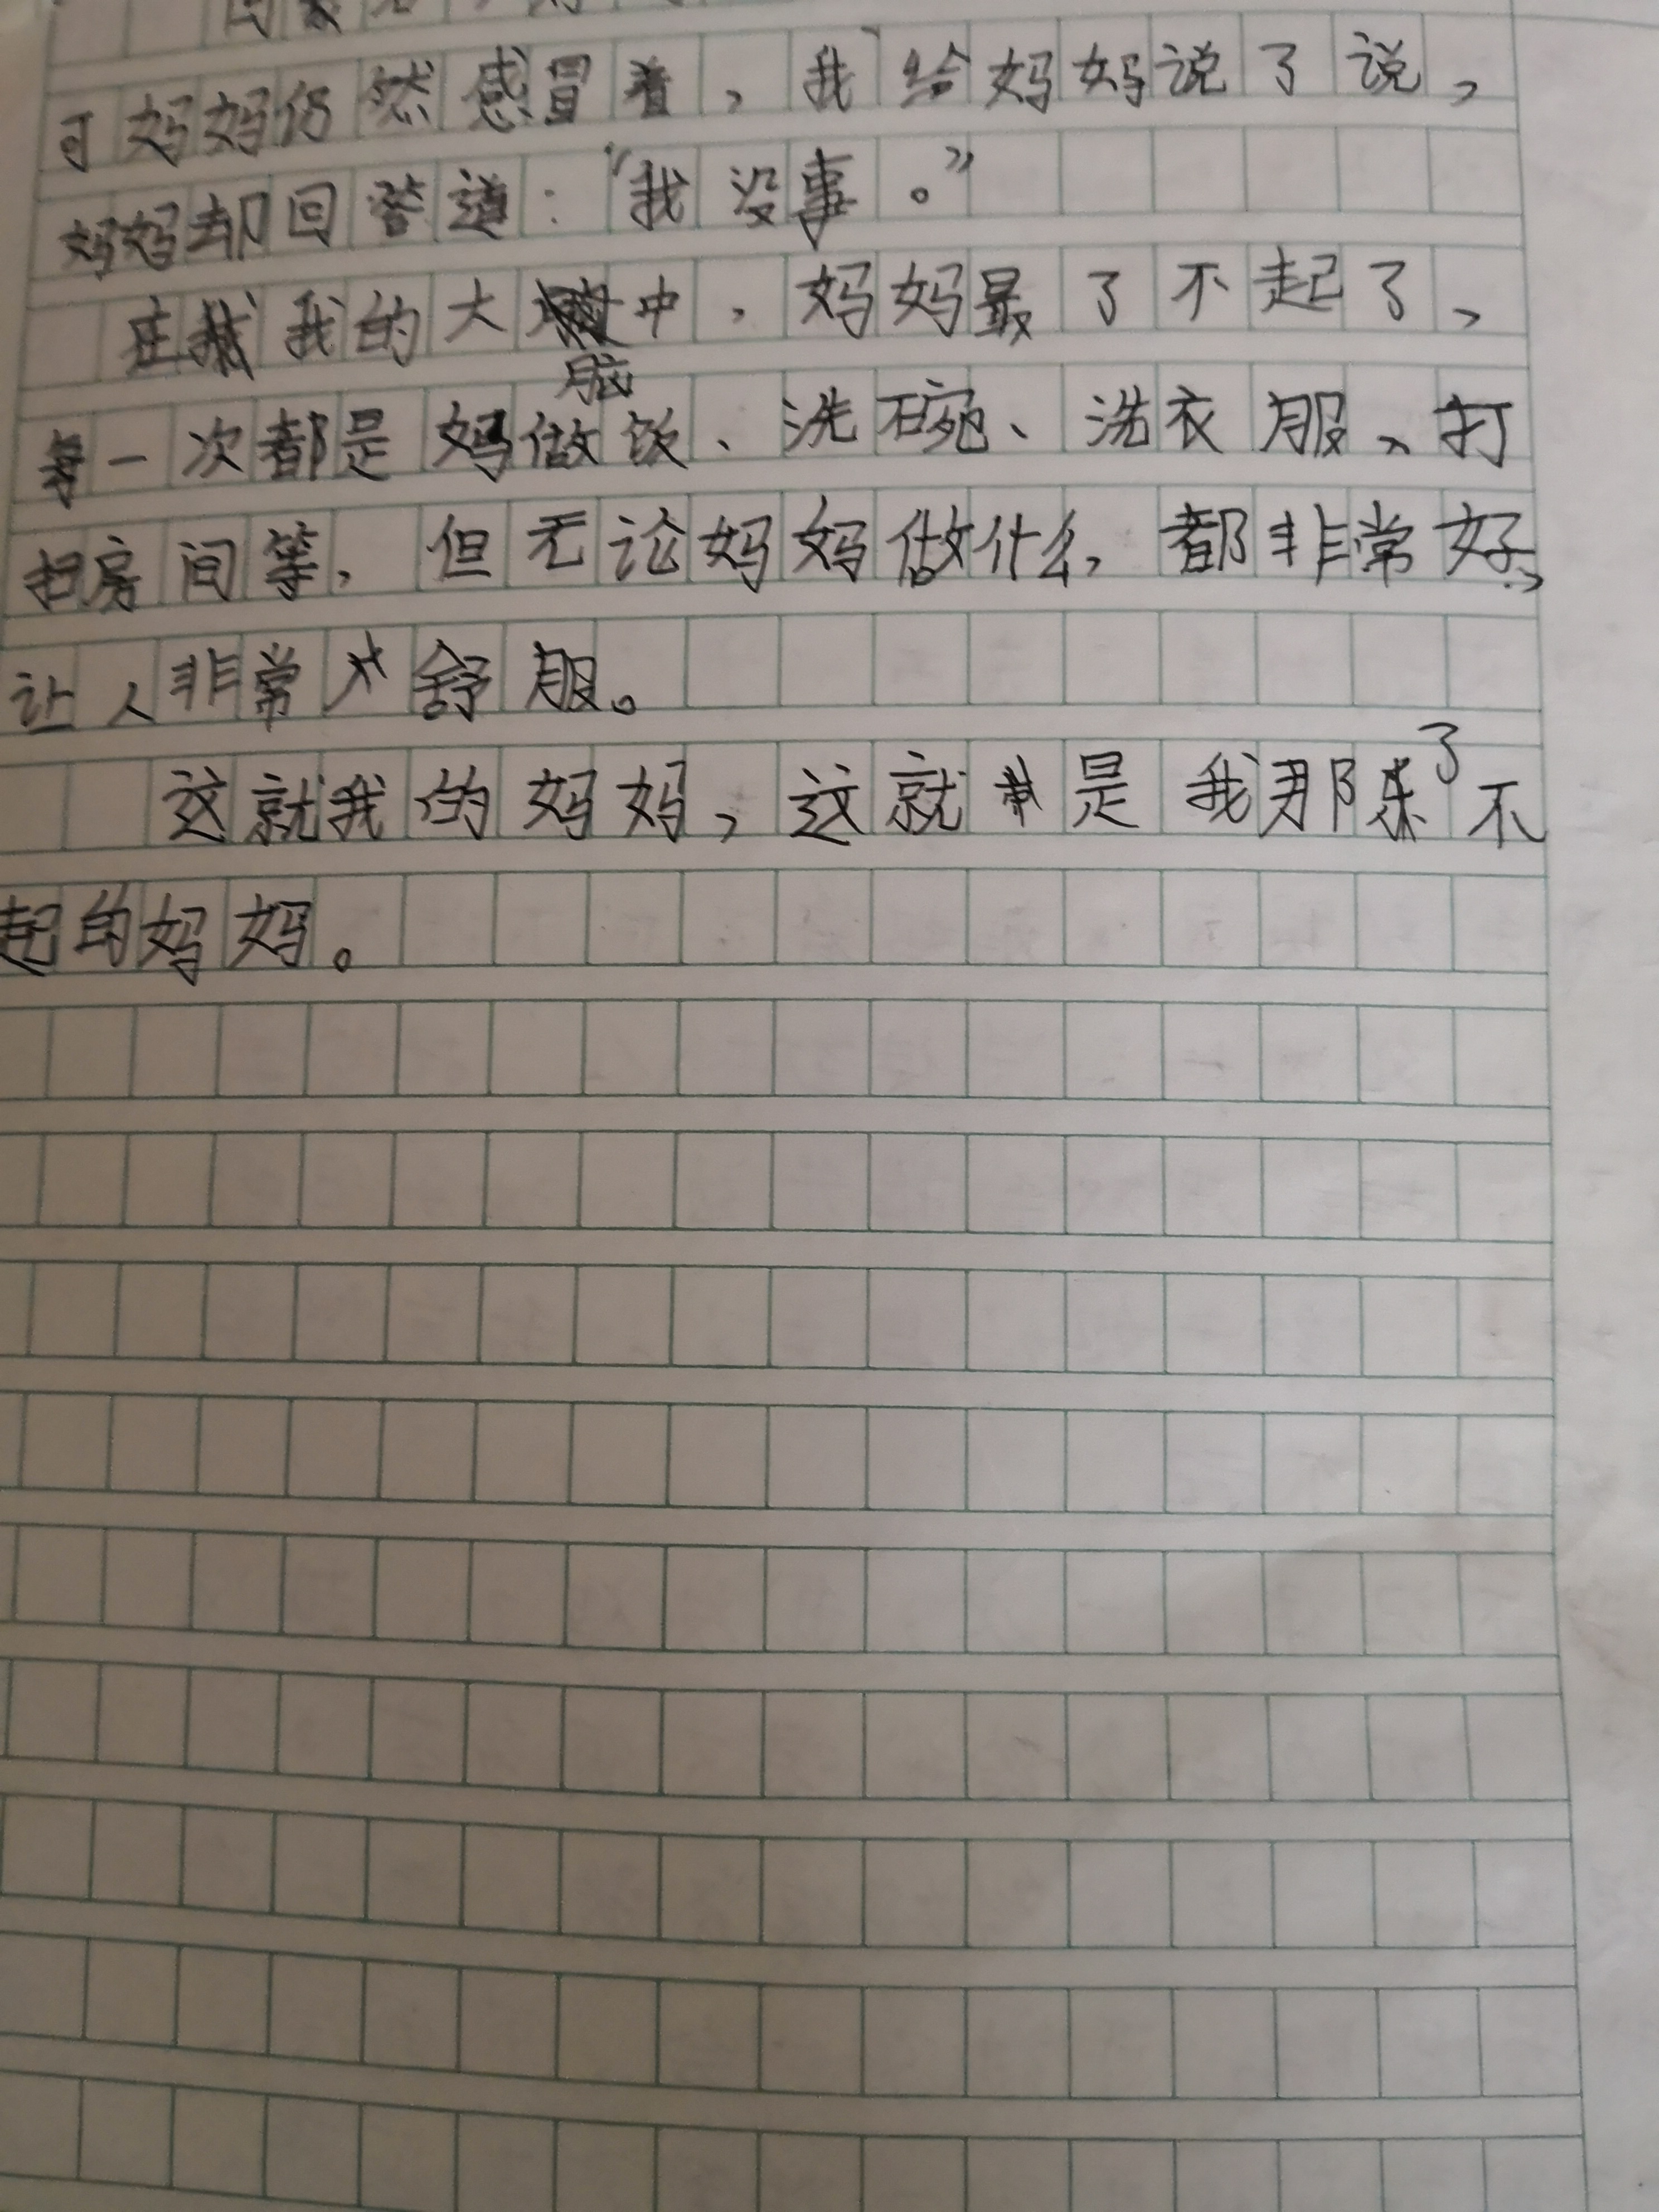 可妈妈仍然感冒着，我给妈妈说了说，
妈妈却回答道：“我没事。”
在我的大脑中，妈妈最了不起了，
每一次都是妈做饭、洗碗、洗衣服、打
扫房间等，但无论妈妈做什么，都非常好，
让人非常舒服。
这就我的妈妈，这就是我那么了不
起的妈妈。